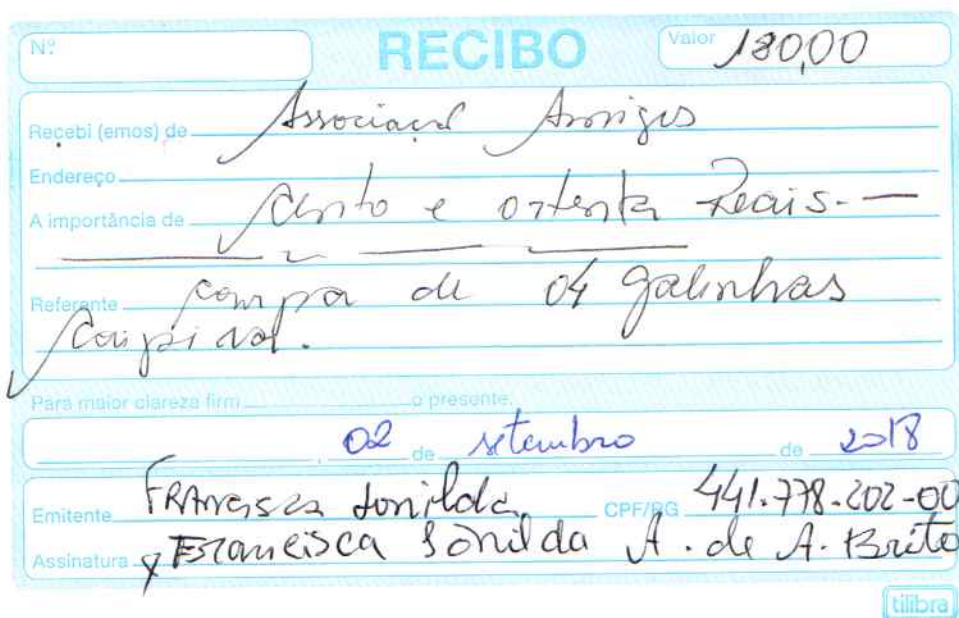 Nº RECIBO Valor 180,00
Recebi (emos) de Associaçal Amigos
Endereço
A importância de Cento e oitenta Reais.
Referente compra de 04 galinhas
Caipival.
Para maior clareza firm o presente.
, 02 de setembro de 2018
Emitente FRANcisca Sonilda CPF/RG 441.778.202-00
Assinatura x Francisca Sonilda A. de A. Brito
tilibra